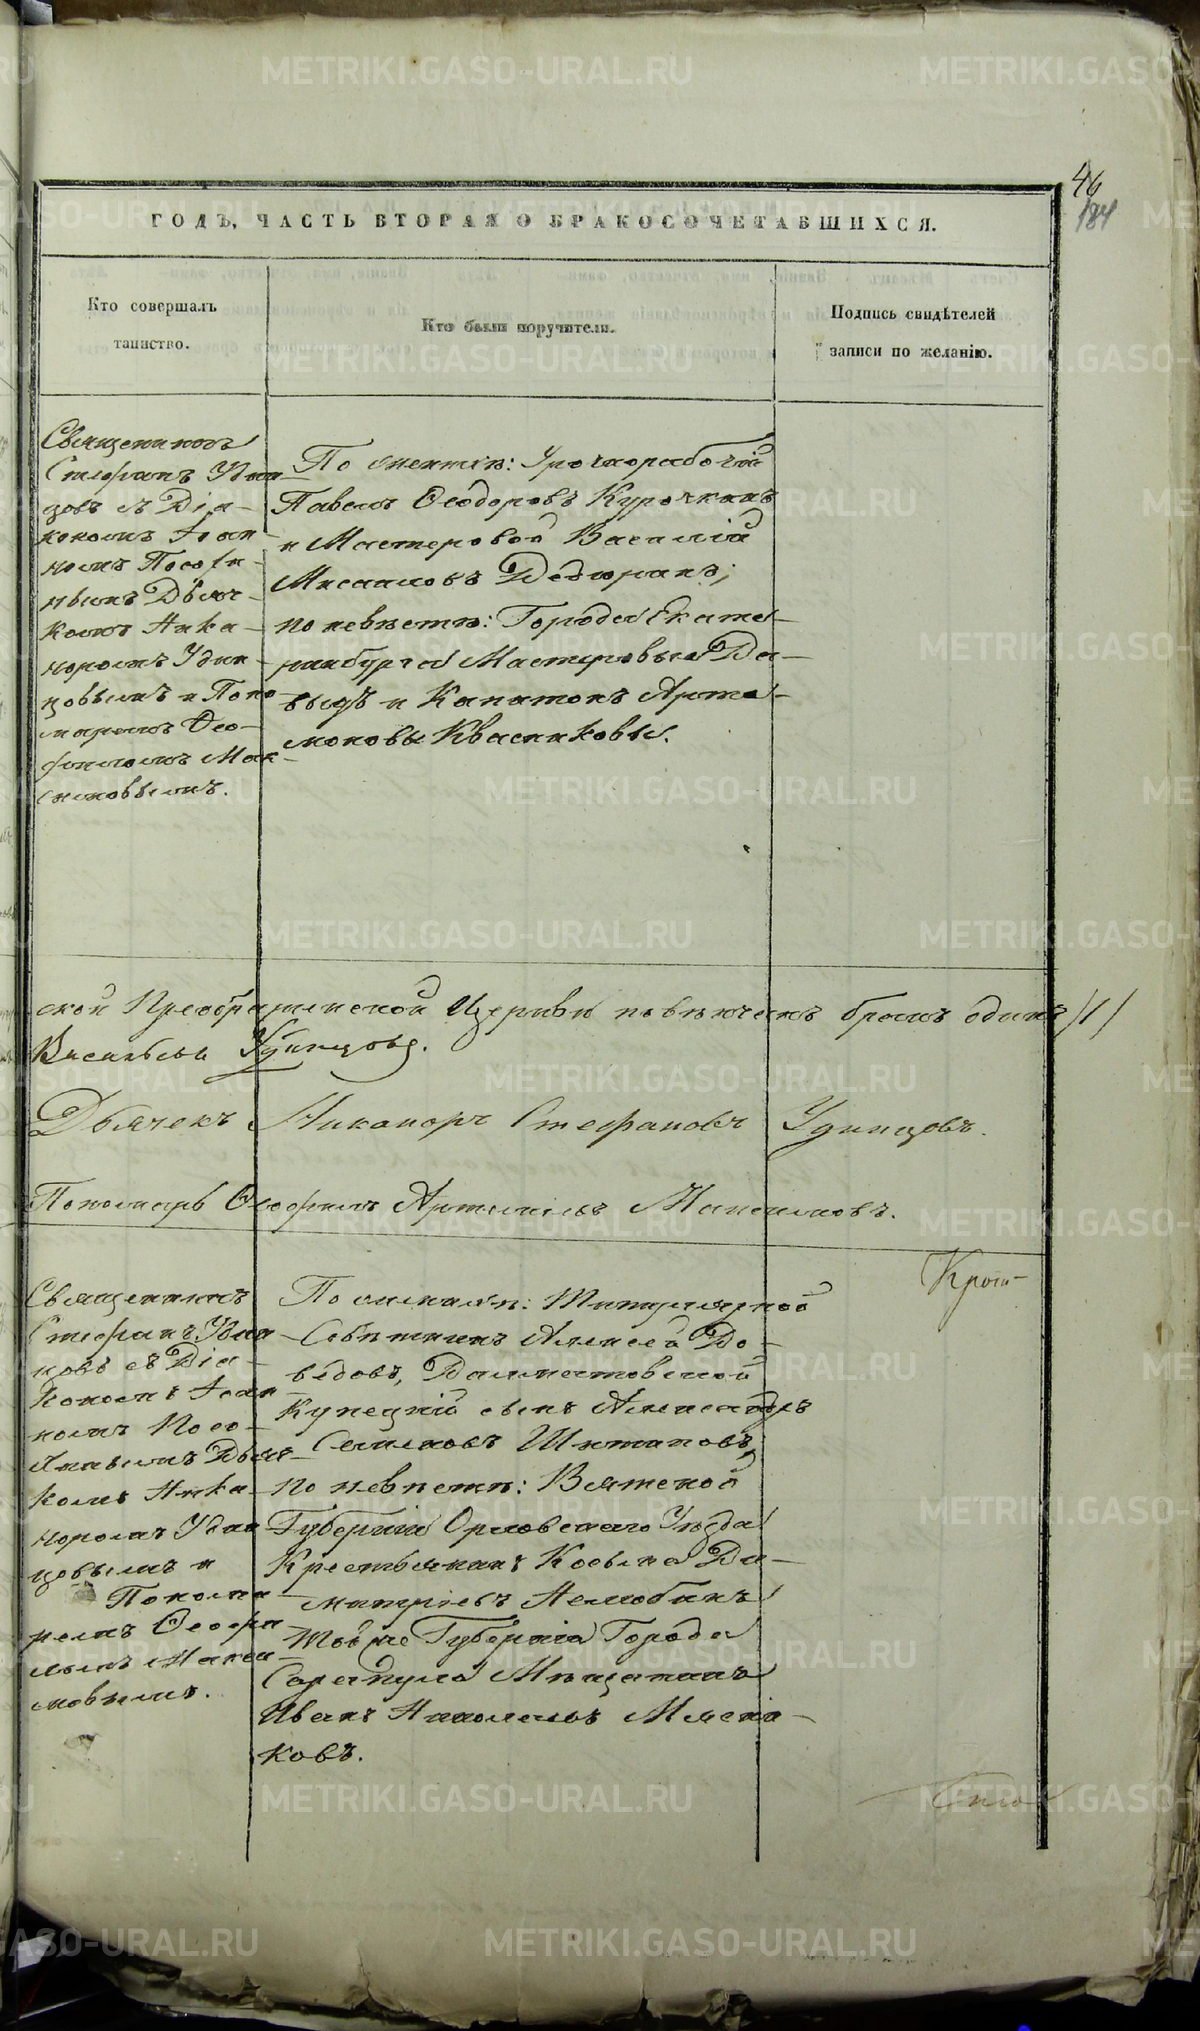 46
184
ГОДЪ, ЧАСТЬ ВТОРАЯ О БРАКОСОЧЕТАВШИХСЯ.
Кто совершалъ
таинство.
Кто были поручители.
Подпись свидѣтелей
записи по желанію.
Священникъ
Стефанъ Удин-
цовъ съ Діа-
кономъ Іоан-
номъ
Дьяч-
комъ Ника-
норомъ Удин-
цовымъ и Поно-
маремъ Ѳео-
филомъ Мак-
симовымъ.
По женихѣ: Урочнорабочій
Павелъ Ѳеодоровъ Курочкинъ
и Мастеровой Василій
Дедюринъ;
по невѣстѣ: Города Екате-
ринбурга Мастеровые Да-
выдъ и Капитонъ Арта-
моновы Квасниковы.
ской Преображенской Церкви повѣнчанъ бракъ одинъ /1/
Васильевъ Удинцовъ.
Дьячекъ Никаноръ Стефановъ Удинцовъ.
Пономарь Ѳеофилъ Максимовъ.
Священникъ
Стефанъ Удин-
цовъ съ Діа-
кономъ Іоан-
номъ
Дьяч-
комъ Ника-
норомъ Удин-
цовымъ и
Понома-
ремъ Ѳеофи-
ломъ Макси-
мовымъ.
По женихѣ: Титулярной
Совѣтникъ Алексѣй До-
ведовъ, Далматовской
Купецкій сынъ Александръ
по невѣстѣ: Вятской
Губерніи Орловскаго Уѣзда
Крестьянинъ Косьма Ди-
митріевъ Нелюбинъ
Тойже Губерніи Города
Сарапула Мѣщанинъ
Иванъ Николаевъ Мясни-
ковъ.